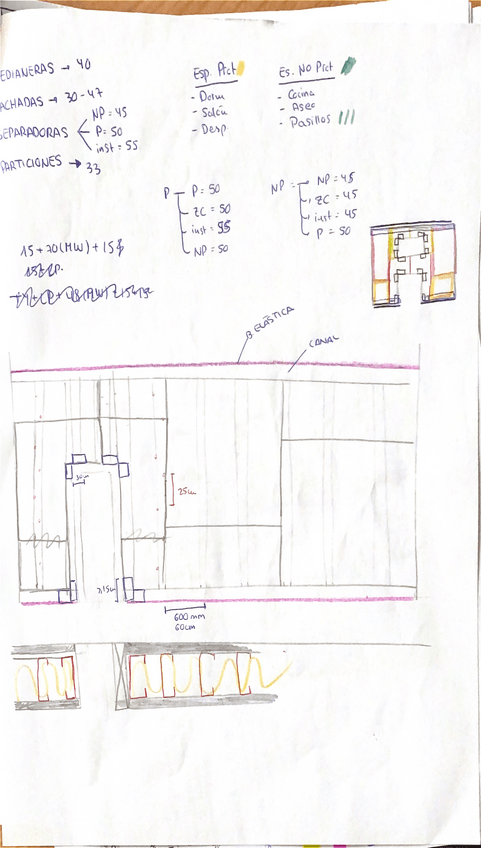 EDIANERAS → 40
ACHADAS → 30-47
SEPARADORAS
NP = 45
P = 50
inst = 55
PARTICIONES → 33
Esp. Prct
- Dorm
- Salón
- Desp.
Es. No Prct
- Cocina
- Aseo
- Pasillos
P
P = 50
ZC = 50
inst = 55
NP = 50
NP
NP = 45
ZC = 45
inst = 45
P = 50
15 + 70(MW) + 15
B ELÁSTICA
CANAL
25cm
600 mm
60cm